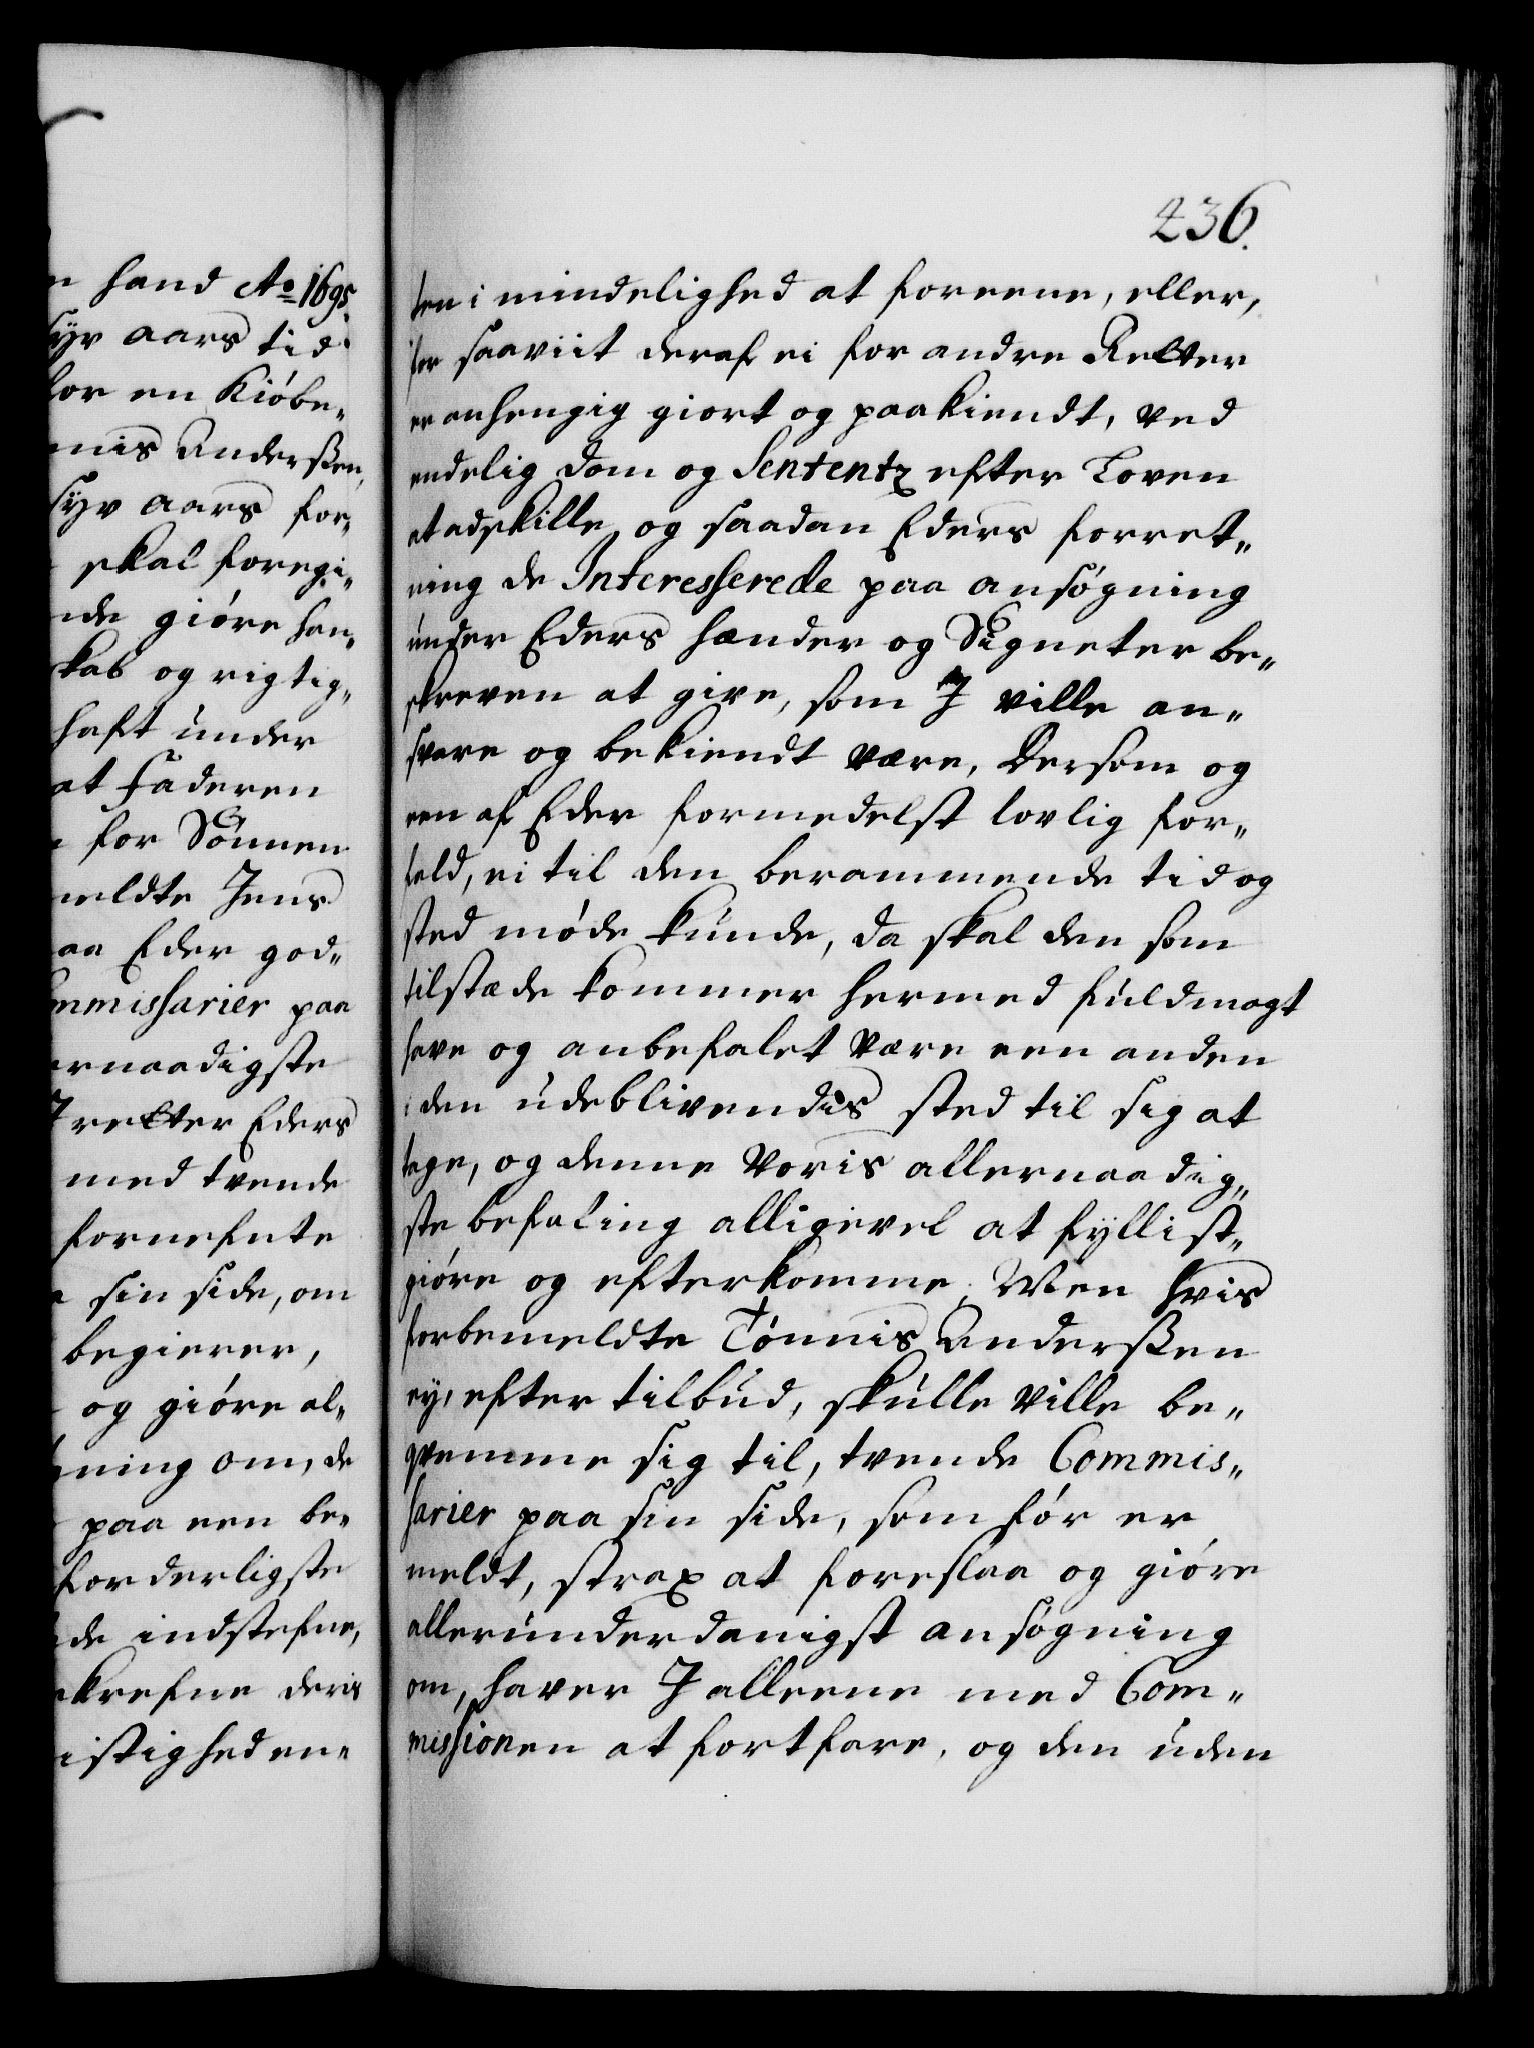 n hand Ao 1695.
syv aars tid
for en Kiöbe„
nnis Anderßen,
syv aars for„
skal foregi„
nde giöre han„
kab og rigtig„
haft under
at Faderen
for Sönnen
meldte Jens
aa Eder god„
mmissarier paa
ernaadigste
Tretter Eders
med tvende
fornefnte
sin side, om
begierer,
og giöre al„
ning om, de
paa een be„
forderligste
de indstefne,
krefne deris
istigheden„
236.
ten i mindelighed at foreene, eller,
for saaviit deraf ei for andre Retter
er anhengig giort og paakiendt, ved
endelig dom og Sententz efter Loven
at adskille, og saadan Eders forret„
ning de Interesserede paa ansögning
under Eders hænder og Signeter be„
skreven at give, som I ville an„
svare og bekiendt være, Dersom og
een af Eder formedelst lovlig for„
fald, ei til den berammende tid og
sted möde kunde, da skal den som
tilstæde kommer hermed fuldmagt
have og anbefalet være een anden
i den udeblivendis sted til sig at
tage, og denne Voris allernaadig„
ste befaling alligevel at fyllist„
giöre og efterkomme. Men hvis
forbemeldte Tönnis Anderßen
ey, efter tilbud, skulle ville be„
qvemme sig til, tvende Commis„
sarier paa sin side, som för er
meldt, strax at foreslaa og giöre
allerunderdanigst ansögning
om, haver I alleene med Com„
missionen at fortfare, og den uden